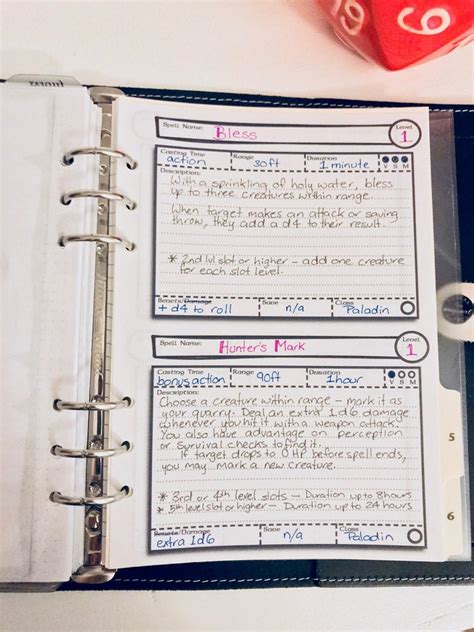 Spell Name: Bless
Level 1
Casting Time action Range 30ft Duration 1 minute V S M
Description:
With a sprinkling of holy water, bless
up to three creatures within range.
When target makes an attack or saving
throw, they add a d4 to their result.
* 2nd lvl slot or higher – add one creature
for each slot level.
Benefit/Damage + d4 to roll Save n/a Class Paladin
Spell Name: Hunter's Mark
Level 1
Casting Time bonus action Range 90ft Duration 1 hour V S M
Description:
Choose a creature within range – mark it as
your quarry. Deal an extra 1d6 damage
whenever you hit it with a weapon attack.
You also have advantage on perception
or Survival checks to find it.
If target drops to 0 HP before spell ends,
you may mark a new creature.
* 3rd or 4th level slots – Duration up to 8 hours
* 5th level slot or higher – Duration up to 24 hours
Benefit/Damage extra 1d6 Save n/a Class Paladin
5
6
9